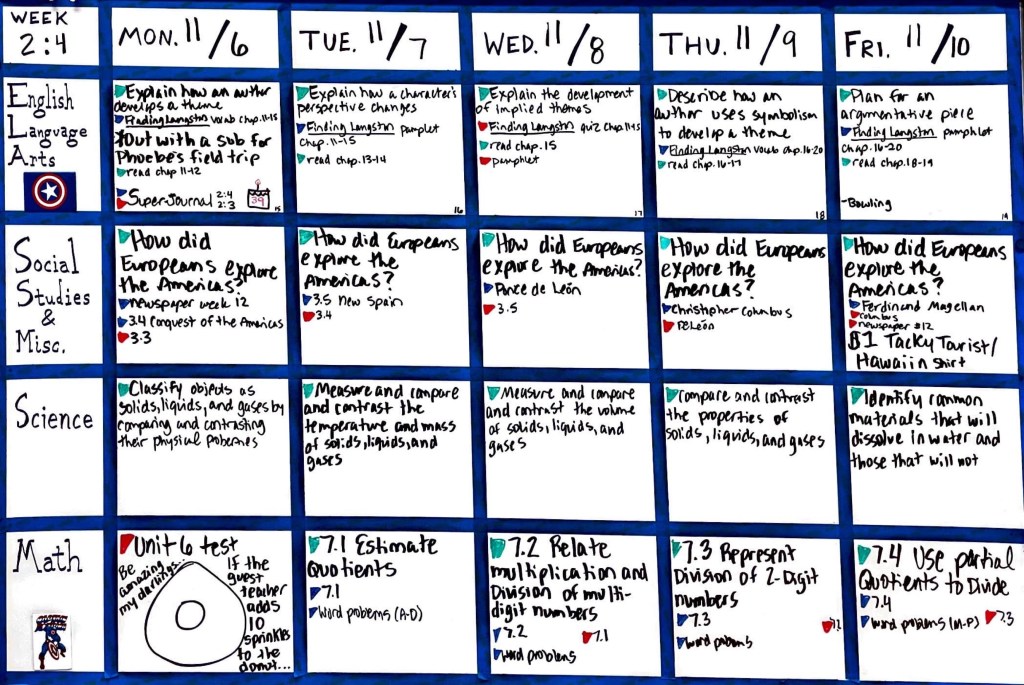 WEEK
2:4
MON. 11/6
TUE. 11/7
WED. 11/8
THU. 11/9
FRI. 11/10
English
Language
Arts
Explain how an author
develops a theme
Finding Langston vocab chap.11-15
*Out with a sub for
Phoebe's field trip
read chap 11-12
Super-Journal 2:4
2:3
39
15
Explain how a character's
perspective changes
Finding Langston pamplet
chap. 11-15
read chap. 13-14
16
Explain the development
of implied themes
Finding Langston quiz chap.11-15
read chap. 15
pamphlet
17
Describe how an
author uses symbolism
to develop a theme
Finding Langston vocab chap.16-20
read chap. 16-17
18
Plan for an
argmentative piece
Finding Langston pamphlet
chap. 16-20
read chap. 18-19
-Bowling
19
Social
Studies
&
Misc.
How did
Europeans explore
the Americas?
newspaper week 12
3.4 Conquest of the Americas
3.3
How did Europeans
explore the
Americas?
3.5 New Spain
3.4
How did Europeans
explore the Americas?
Ponce de León
3.5
How did Europeans
explore the
Americas?
Christopher Columbus
DeLeón
How did Europeans
explore the
Americas?
Ferdinand Magellan
Columbus
newspaper #12
$1 Tacky Tourist/
Hawaiin Shirt
Science
Classify objects as
solids, liquids, and gases by
comparing and contrasting
their physical
Measure and compare
and contrast the
temperature and mass
of solids, liquids, and
gases
Measure and compare
and contrast the volume
of solids, liquids, and
gases
Compare and contrast
the properties of
solids, liquids, and gases
Identify common
materials that will
dissolve in water and
those that will not
Math
Unit 6 test
Be
amazing
my darlings...
If the
guest
teacher
adds
10
sprinkles
to the
donut...
7.1 Estimate
Quotients
7.1
Word probems (A-D)
7.2 Relate
multiplication and
Division of multi-
digit numbers
7.2
7.1
Word problems
7.3 Represent
Division of 2-Digit
numbers
7.3
7.2
word probems
7.4 Use partial
Quotients to Divide
7.4
Word problems (M-P)
7.3